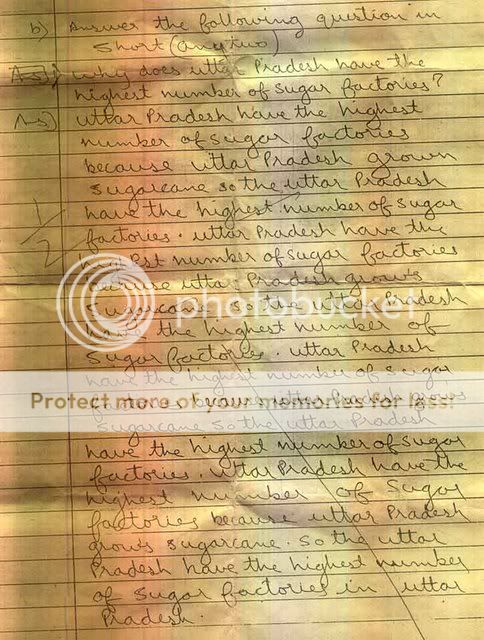 b) Answer the following question in
Short (any two)
Ans) Why does uttar Pradesh have the
highest number of sugar factories?
Ans) uttar Pradesh have the highest
number of sugar factories
because uttar Pradesh grown
sugarcane so the uttar Pradesh
have the highest number of sugar
1/2 factories. uttar Pradesh have the
highest number of sugar factories
because uttar Pradesh grows
sugarcane so the uttar Pradesh
have the highest number of
sugar factories. uttar Pradesh
have the highest number of sugar
photobucket
Protect more of your memories for less!
sugarcane so the uttar Pradesh
have the highest number of sugar
factories. uttar Pradesh have the
highest number of sugar
factories because uttar Pradesh
grows sugarcane. So the uttar
Pradesh have the highest number
of sugar factories in uttar
Pradesh.